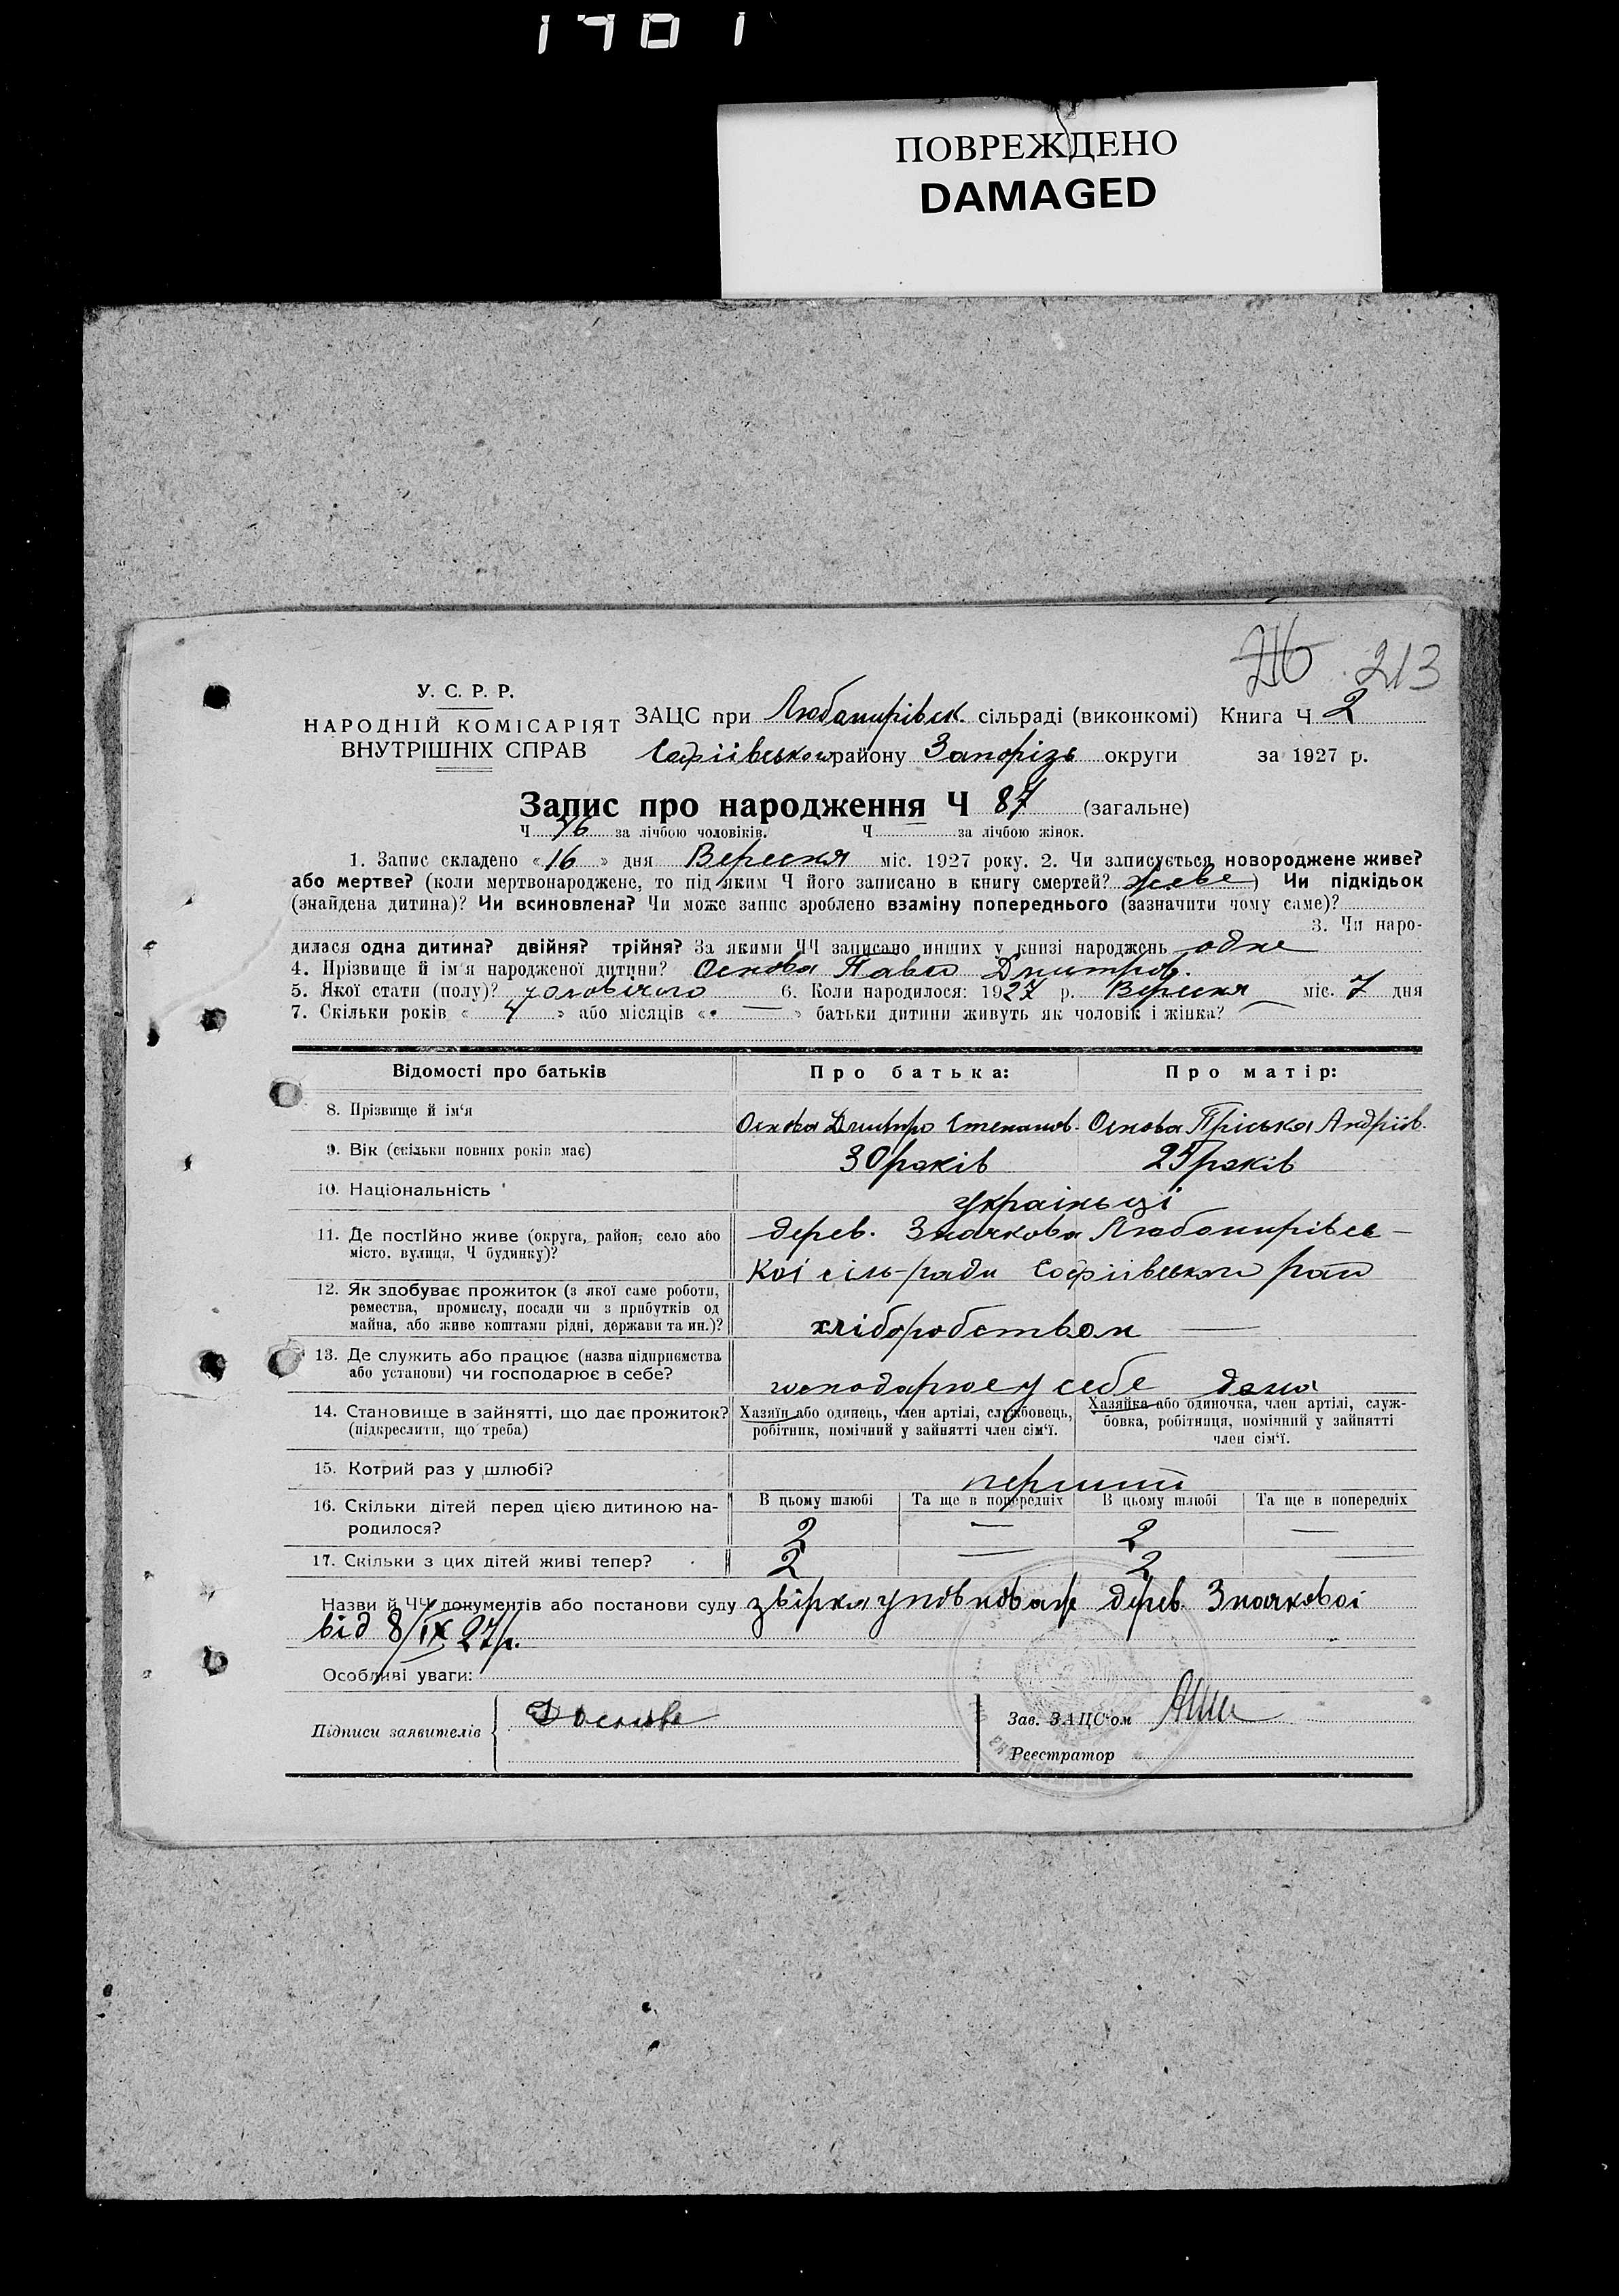 1701
ПОВРЕЖДЕНО
DAMAGED
213
У. С. Р. Р.
НАРОДНІЙ КОМІСАРІЯТ
ВНУТРІШНІХ СПРАВ
ЗАЦС при Любомирівськ. сільраді (виконкомі) Книга Ч 2
Софіївського району Запорізь округи за 1927 р.
Запис про народження Ч 87 (загальне)
Ч 46 за лічбою чоловіків. Ч за лічбою жінок.
1. Запис складено «16» дня Вересня міс. 1927 року. 2. Чи записується новороджене живе?
або мертве? (коли мертвонароджене, то під яким Ч його записано в книгу смертей? живе) Чи підкідьок
(знайдена дитина)? Чи всиновлена? Чи може запис зроблено взаміну попереднього (зазначити чому саме)?
3. Чи наро-
дилася одна дитина? двійня? трійня? За якими ЧЧ записано инших у книзі народжень одне
4. Прізвище й ім'я народженої дитини? Основа Павло Дмитров.
5. Якої стати (полу)? чоловічого 6. Коли народилося: 1927 р. Вересня міс. 7 дня
7. Скільки років «4» або місяців «—» батьки дитини живуть як чоловік і жінка?
Відомості про батьків Про батька: Про матір:
8. Прізвище й ім'я Основа Дмитро Степанов. Основа Пріська Андріїв.
9. Вік (скільки повних років має) 30 років 25 років
10. Національність українці
11. Де постійно живе (округа, район, село або дерев. Значкова Любомирівсь-
місто, вулиця, Ч будинку)? кої сіль-ради Софіївського рай
12. Як здобуває прожиток (з якої саме роботи,
ремества, промислу, посади чи з прибутків од
майна, або живе коштами рідні, держави та ин.)? хліборобством —
13. Де служить або працює (назва підприємства
або установи) чи господарює в себе? господарює у себе дома
14. Становище в зайнятті, що дає прожиток? Хазяїн або одинець, член артілі, службовець, Хазяйка або одиночка, член артілі, служ-
(підкреслити, що треба) робітник, помічний у зайнятті член сім'ї. бовка, робітниця, помічний у зайнятті
член сім'ї.
15. Котрий раз у шлюбі? перший
16. Скільки дітей перед цією дитиною на- В цьому шлюбі Та ще в попередніх В цьому шлюбі Та ще в попередніх
родилося? 2 — 2 —
17. Скільки з цих дітей живі тепер? 2 — 2 —
Назви й ЧЧ документів або постанови суду звірка дерев. Значкової
від 8/IX 27 р.
Особливі уваги:
Підписи заявителів Д Основа Зав. ЗАЦС'ом
Реєстратор